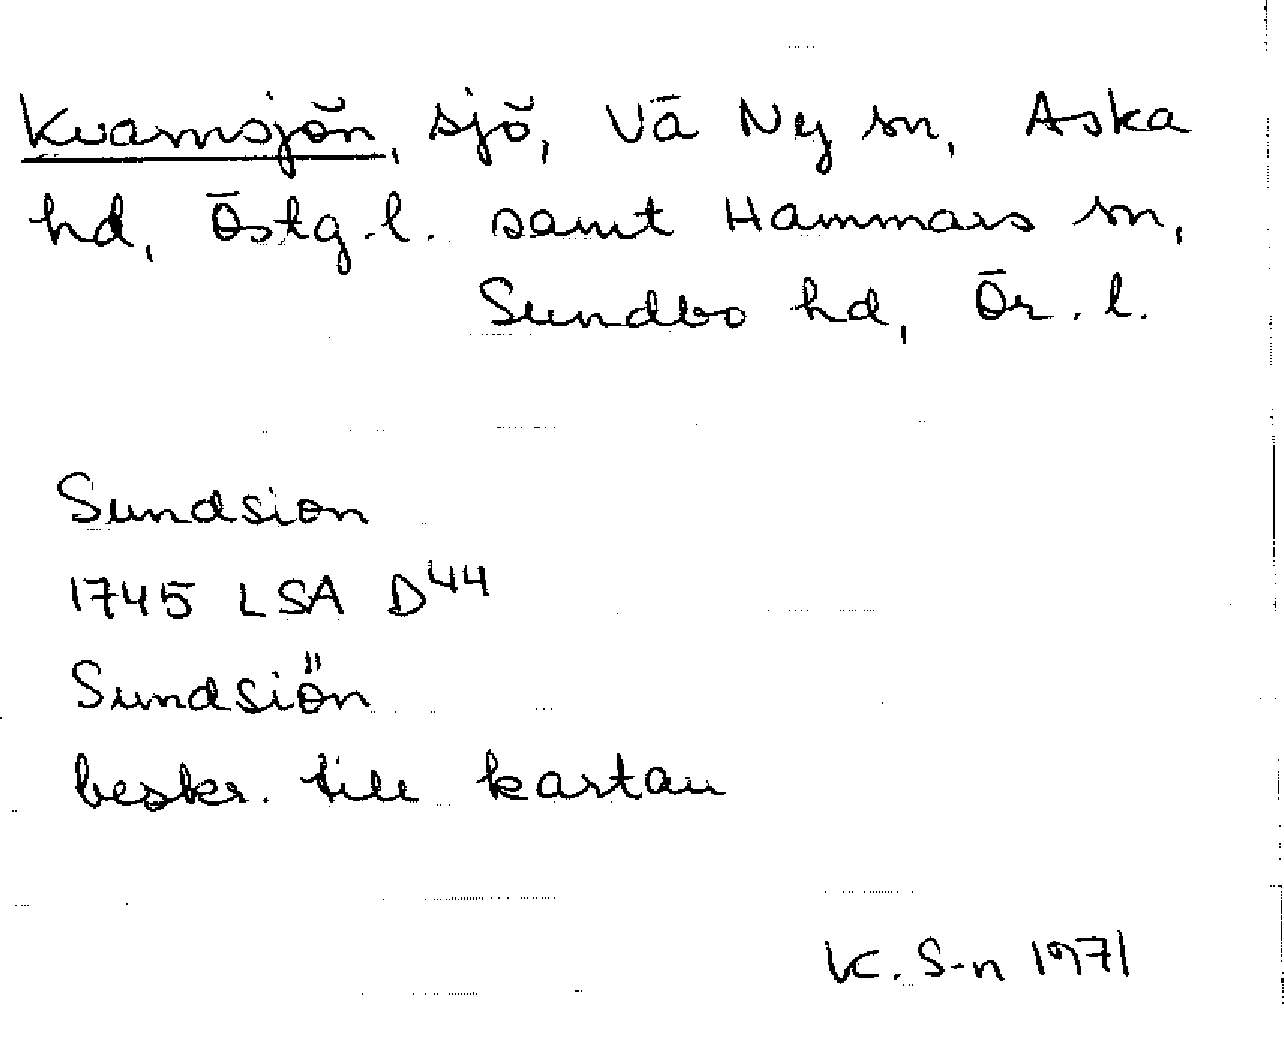 Kvarnsjön, sjö, Vä Ny sn, Aska
hd, Östg.l. samt Hammars sn,
Sundbo hd, Ör. l.
Sundsion
1745 LSA D44
Sundsiön
beskr. till kartan
K. S-n 1971